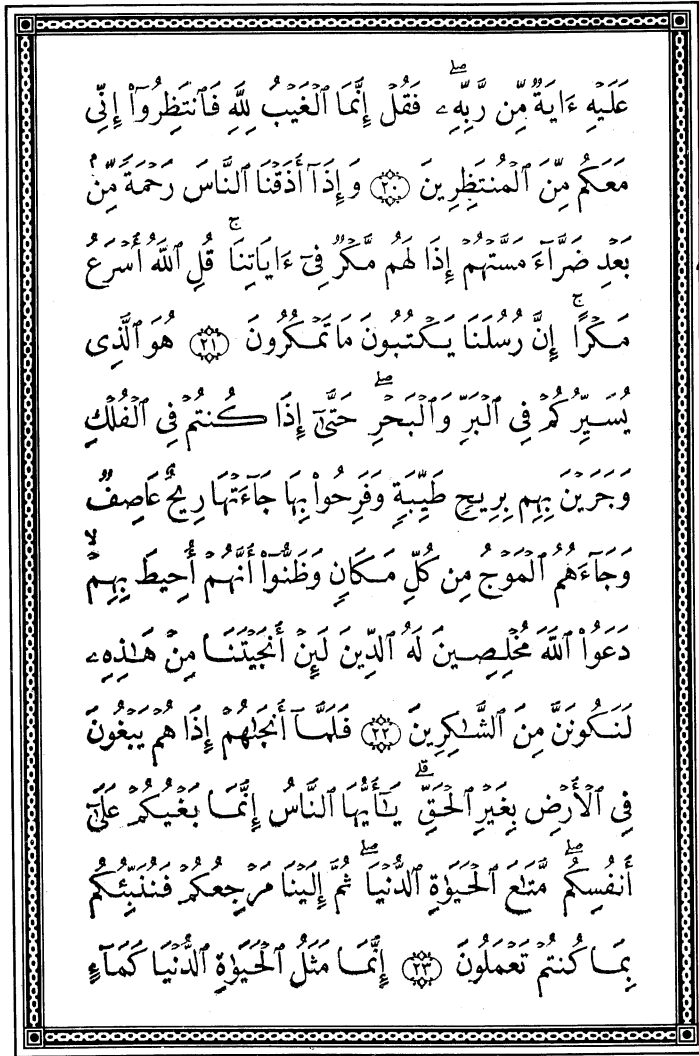 عَلَيْهِ ءَايَةٌ مِّن رَّبِّهِۦ ۖ فَقُلْ إِنَّمَا ٱلْغَيْبُ لِلَّهِ فَٱنتَظِرُوٓا۟ إِنِّى
مَعَكُم مِّنَ ٱلْمُنتَظِرِينَ ٢٠ وَإِذَآ أَذَقْنَا ٱلنَّاسَ رَحْمَةً مِّنۢ
بَعْدِ ضَرَّآءَ مَسَّتْهُمْ إِذَا لَهُم مَّكْرٌ فِىٓ ءَايَاتِنَا ۚ قُلِ ٱللَّهُ أَسْرَعُ
مَكْرًا ۚ إِنَّ رُسُلَنَا يَكْتُبُونَ مَا تَمْكُرُونَ ٢١ هُوَ ٱلَّذِى
يُسَيِّرُكُمْ فِى ٱلْبَرِّ وَٱلْبَحْرِ ۖ حَتَّىٰٓ إِذَا كُنتُمْ فِى ٱلْفُلْكِ
وَجَرَيْنَ بِهِم بِرِيحٍ طَيِّبَةٍ وَفَرِحُوا۟ بِهَا جَآءَتْهَا رِيحٌ عَاصِفٌ
وَجَآءَهُمُ ٱلْمَوْجُ مِن كُلِّ مَكَانٍ وَظَنُّوٓا۟ أَنَّهُمْ أُحِيطَ بِهِمْ ۙ
دَعَوُا۟ ٱللَّهَ مُخْلِصِينَ لَهُ ٱلدِّينَ لَئِنْ أَنجَيْتَنَا مِنْ هَـٰذِهِۦ
لَنَكُونَنَّ مِنَ ٱلشَّـٰكِرِينَ ٢٢ فَلَمَّآ أَنجَىٰهُمْ إِذَا هُمْ يَبْغُونَ
فِى ٱلْأَرْضِ بِغَيْرِ ٱلْحَقِّ ۗ يَـٰٓأَيُّهَا ٱلنَّاسُ إِنَّمَا بَغْيُكُمْ عَلَىٰٓ
أَنفُسِكُم ۖ مَّتَـٰعَ ٱلْحَيَوٰةِ ٱلدُّنْيَا ۖ ثُمَّ إِلَيْنَا مَرْجِعُكُمْ فَنُنَبِّئُكُم
بِمَا كُنتُمْ تَعْمَلُونَ ٢٣ إِنَّمَا مَثَلُ ٱلْحَيَوٰةِ ٱلدُّنْيَا كَمَآءٍ